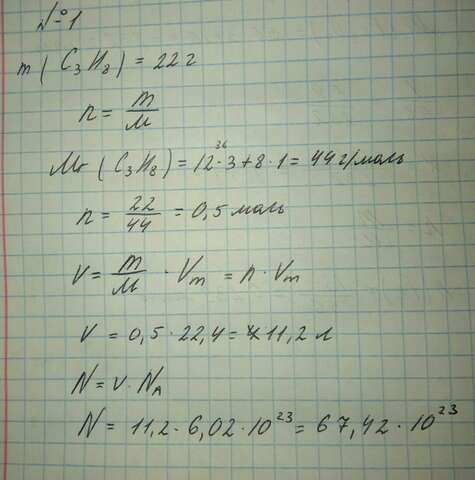 №1
m (C₃H₈) = 22 г
n = m/M
Mr (C₃H₈) = 12·3 + 8·1 = 44 г/моль
36
n = 22/44 = 0,5 моль
V = m/M · Vm = n · Vm
V = 0,5 · 22,4 = 11,2 л
N = v · NA
N = 11,2 · 6,02 · 10²³ = 67,42 · 10²³